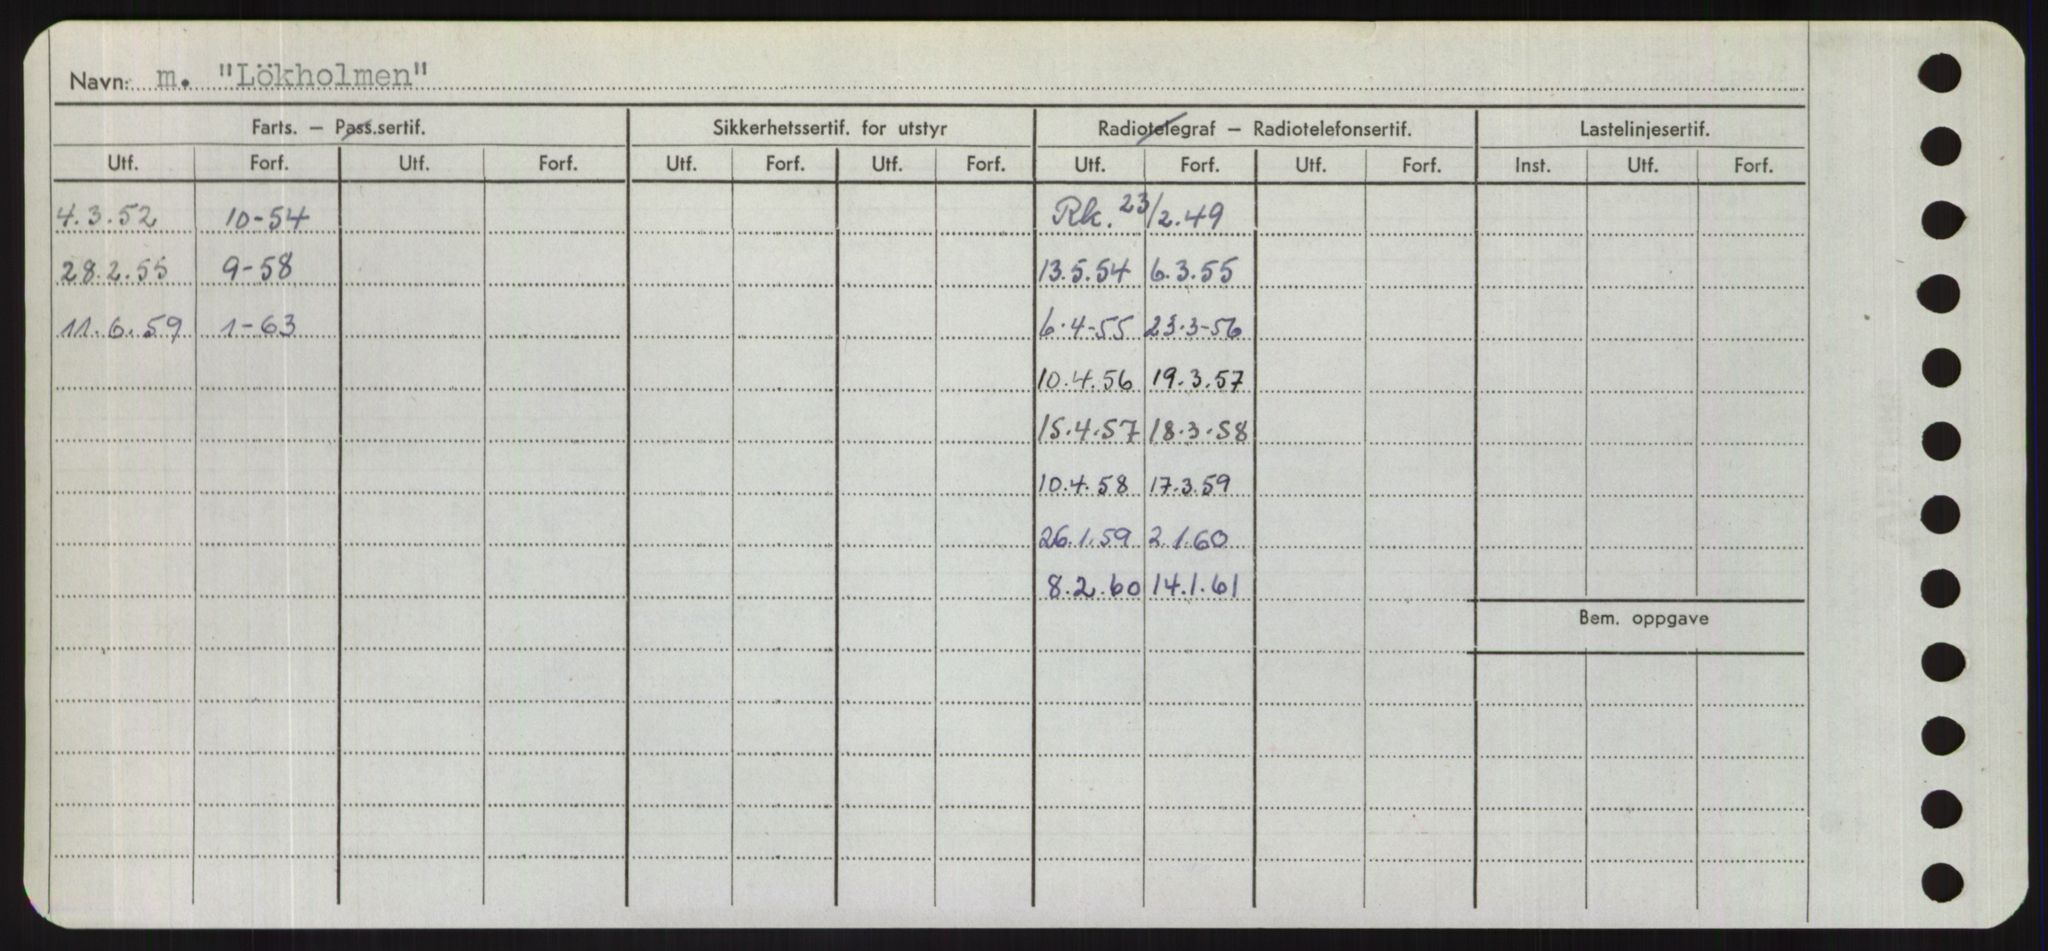 Navn: m. "Lökholmen"
Farts. – Pass.sertif. Sikkerhetssertif. for utstyr Radiotelegraf – Radiotelefonsertif. Lastelinjesertif.
Utf. Forf. Utf. Forf. Utf. Forf. Utf. Forf. Utf. Forf. Utf. Forf. Inst. Utf. Forf.
4.3.52 10-54 Rk. 23/2.49
28.2.55 9-58 13.5.54 6.3.55
11.6.59 1-63 6.4-55 23.3-56
10.4.56 19.3.57
15.4.57 18.3.58
10.4.58 17.3.59
26.1.59 2.1.60
8.2.60 14.1.61
Bem. oppgave